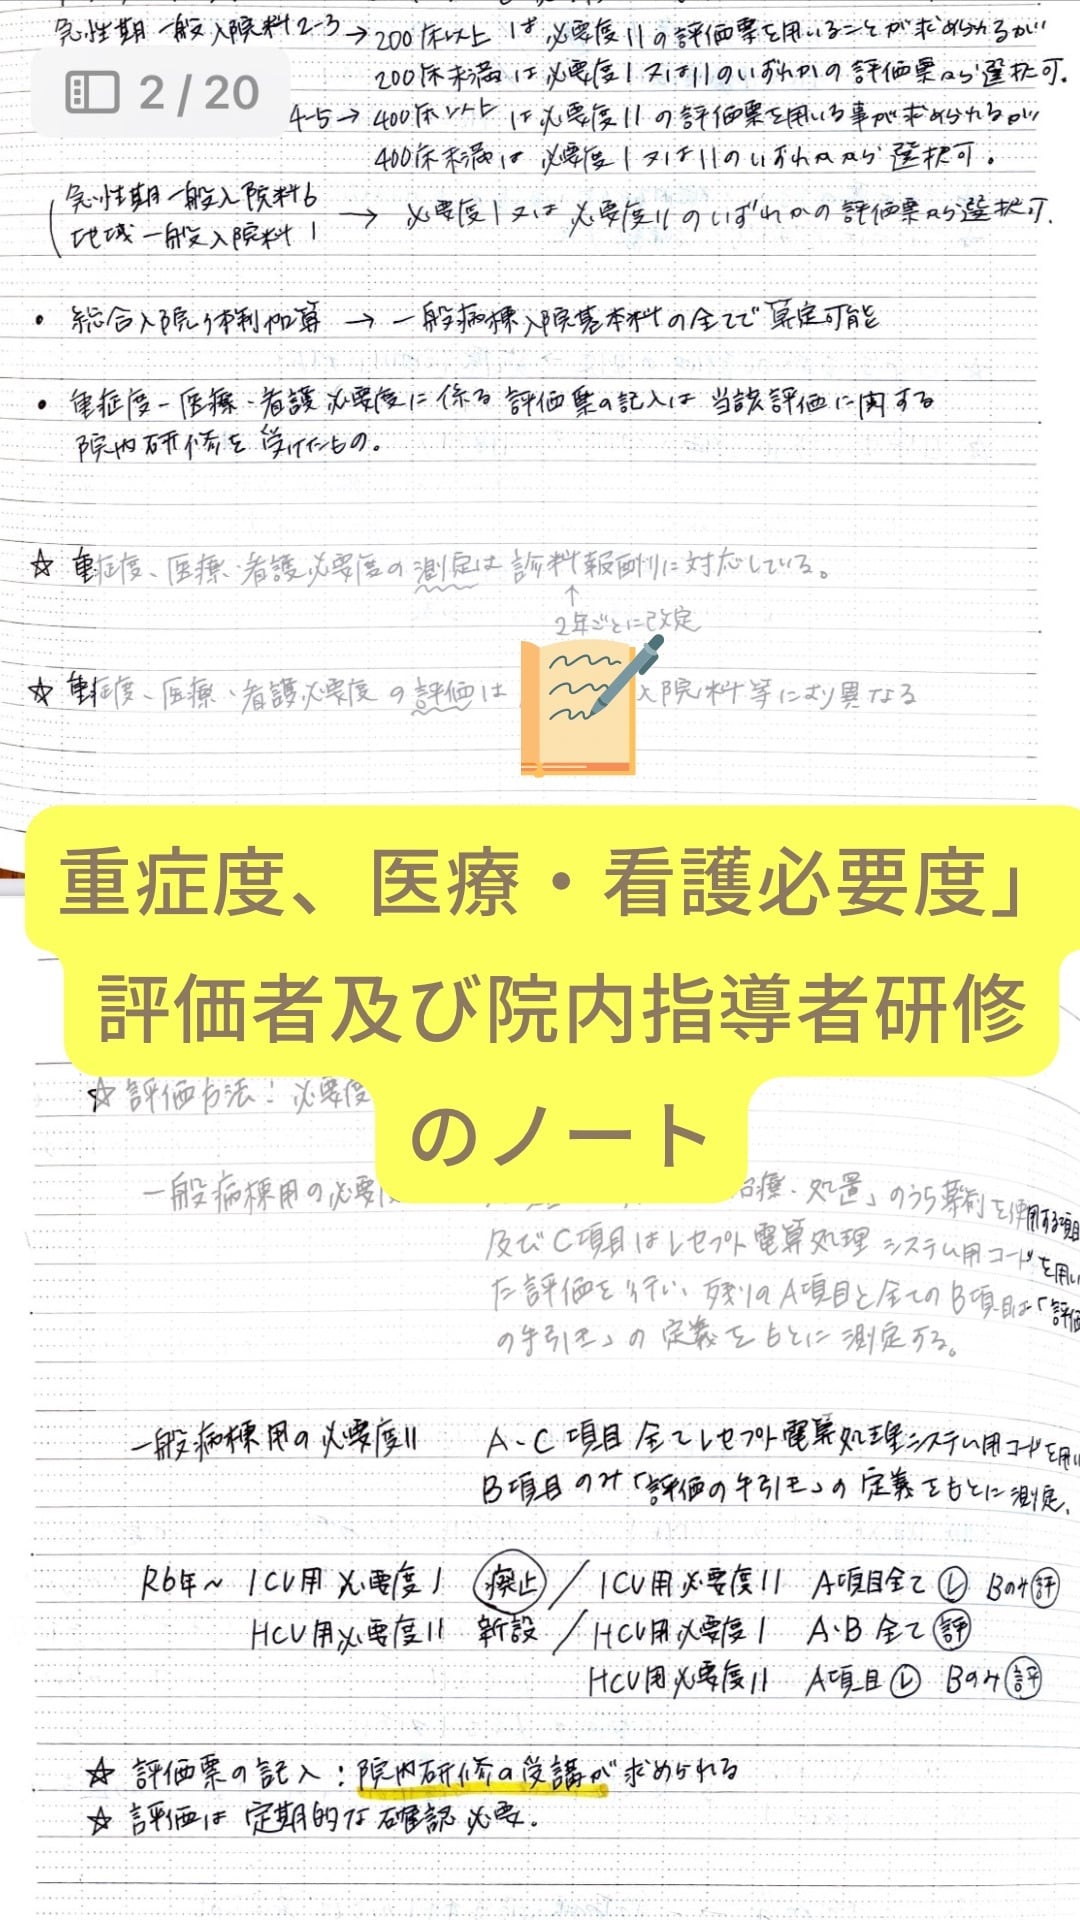 急性期一般入院料2-3→200床以上は必要度IIの評価票を用いることが求められるが
2 / 20
200床未満は必要度I又はIIのいずれかの評価票から選択可.
4-5→400床以上は必要度IIの評価票を用いる事が求められるが
400床未満は必要度I又はIIのいずれかから選択可。
急性期一般入院料6
地域一般入院料1
→必要度I又は必要度IIのいずれかの評価票から選択可.
・総合入院体制加算→一般病棟入院基本料の全てで算定可能
・重症度-医療・看護必要度に係る評価票の記入は当該評価に関する
院内研修を受けたもの。
☆重症度、医療・看護必要度の測定は診料報酬に対応している。
↑
2年ごとに改定
☆重症度、医療・看護必要度の評価は
入院料等により異なる
重症度、医療・看護必要度」
評価者及び院内指導者研修
のノート
☆評価方法:必要度
一般病棟用の必要度
治療・処置」のうち薬剤を使用する項目
及びC項目はレセプト電算処理システム用コードを用い
た評価を行い、残りのA項目と全てのB項目は「評価
の手引き」の定義をもとに測定する。
一般病棟用の必要度II A・C項目全てレセプト電算処理システム用コードを用い
B項目のみ「評価の手引き」の定義をもとに測定.
R6年~ICU用必要度I 廃止/ICU用必要度II A項目全てレ Bのみ評
HCU用必要度II 新設/HCU用必要度I A・B全て評
HCU用必要度II A項目レ Bのみ評
☆評価票の記入:院内研修の受講が求められる
☆評価は定期的な確認必要.